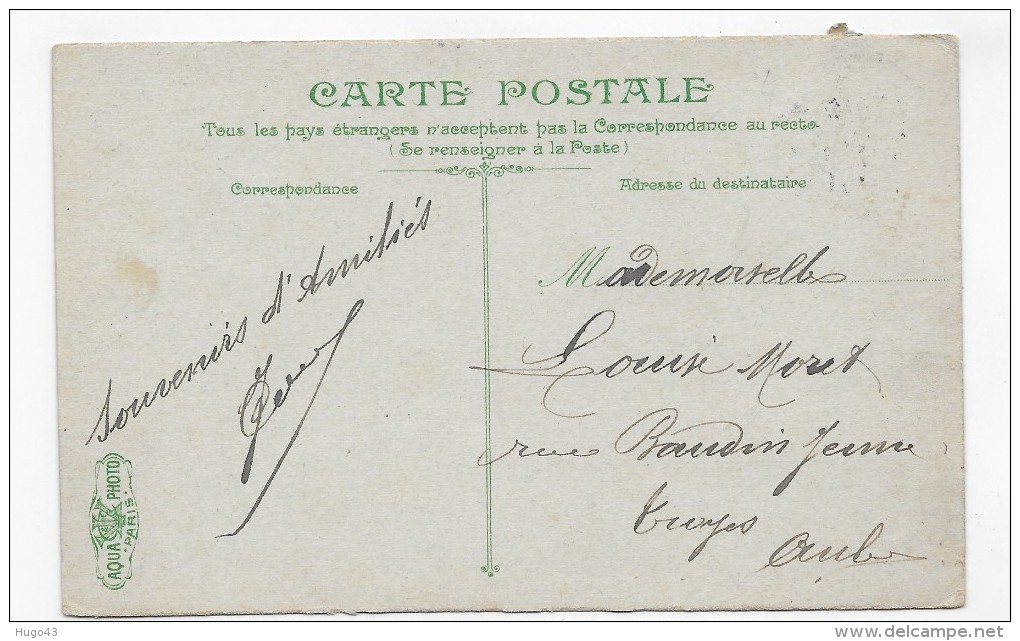 CARTE POSTALE
Tous les pays étrangers n'acceptent pas la Correspondance au recto
(Se renseigner à la Poste)
Correspondance
Adresse du destinataire
Souvenirs d'Amitiés
Mademoiselle
Louise Moret
rue Baudin Jeune
Troyes
Aube
AQUA PHOTO
PARIS
Hugo43
delcampe.net